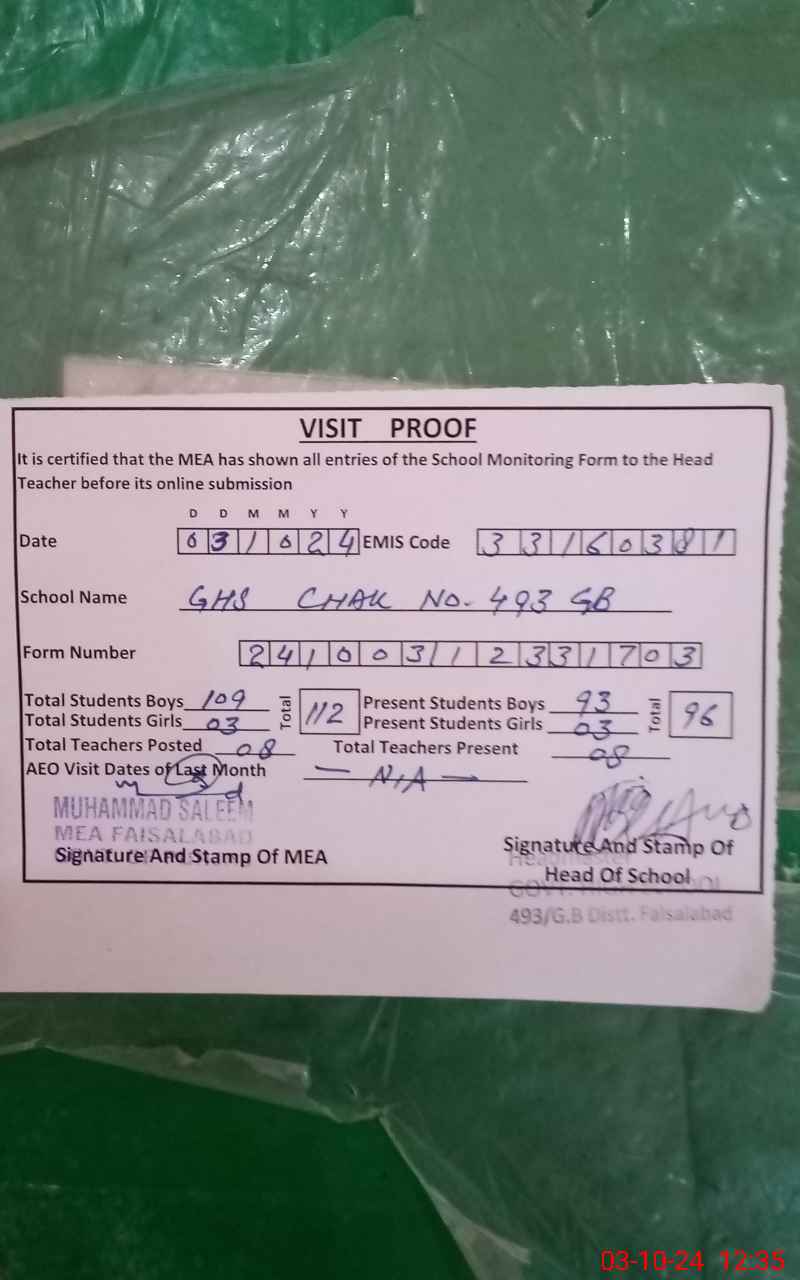 VISIT PROOF
It is certified that the MEA has shown all entries of the School Monitoring Form to the Head
Teacher before its online submission
D D M M Y Y
Date 031024 EMIS Code 33160381
School Name GHS CHAK NO. 493 GB
Form Number 241003112331703
Total Students Boys 109 Total 112 Present Students Boys 93 Total 96
Total Students Girls 03 Present Students Girls 03
Total Teachers Posted 08 Total Teachers Present 08
AEO Visit Dates of Last Month — N/A —
MUHAMMAD SALEEM
MEA FAISALABAD
Signature And Stamp Of MEA
Signature And Stamp Of
Headmaster
Head Of School
GOVT. HIGH SCHOOL
493/G.B Distt. Faisalabad
03-10-24 12:35